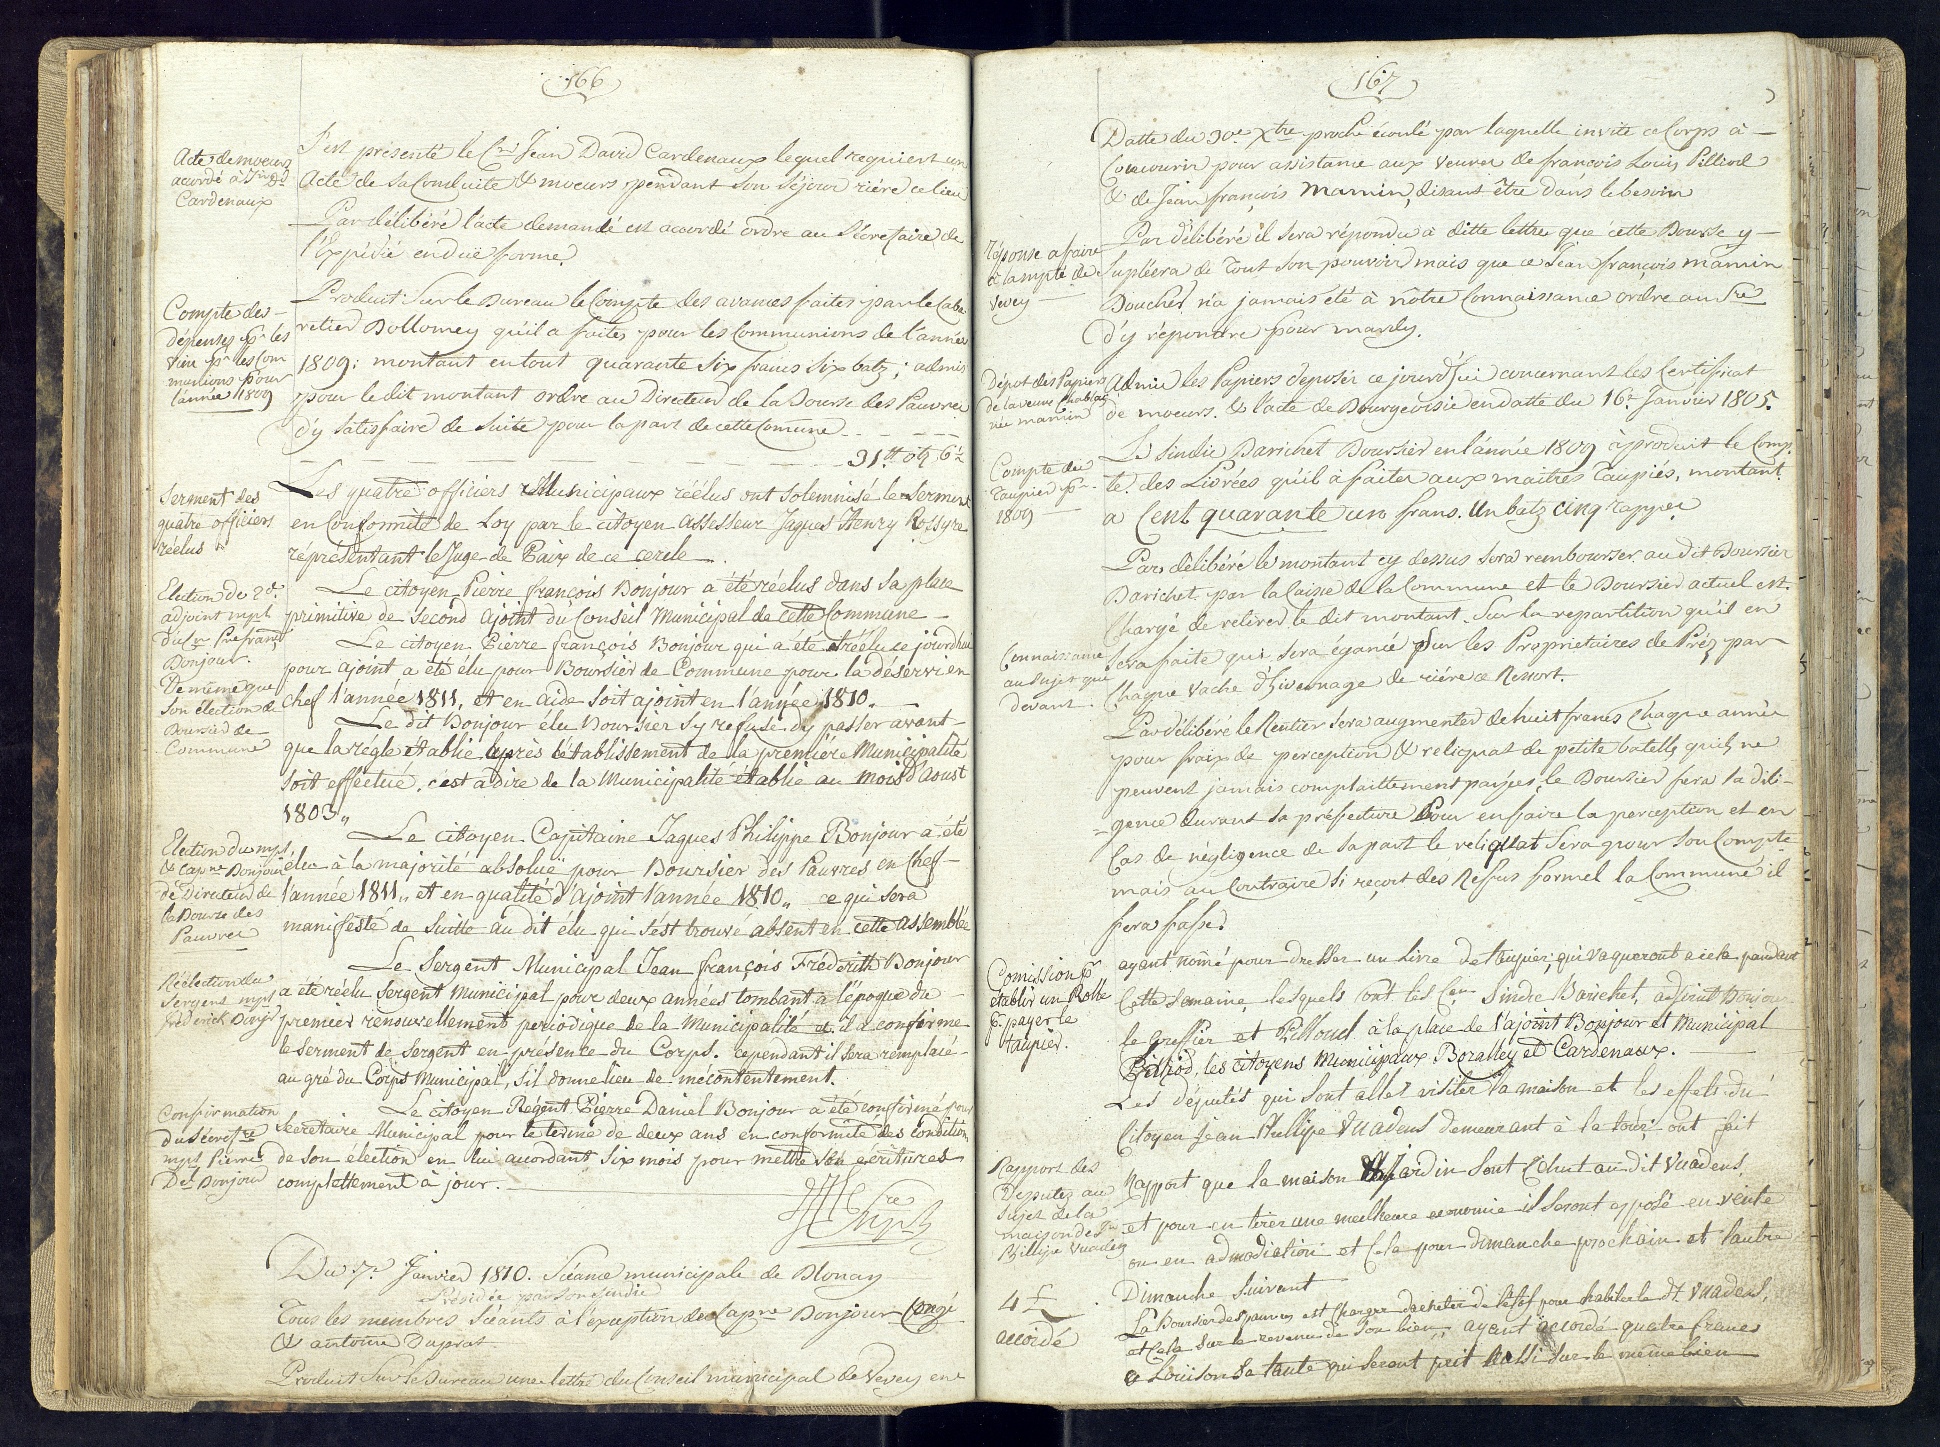 166
Acte de moeurs
accordé à J.n D.d
Cardenaux
S'est présenté le C.en Jean David Cardenaux lequel requiert un
Acte de sa Conduite & moeurs pendant son séjour riére ce lieu
Par délibéré l'acte demandé est accordé ordre au Sécretaire de
l'Expédié en düe forme.
Compte des
dépenses p.r les
vin p.r les Com
munions pour
l'année 1809
Produit Sur le Bureau le Compte des avances faites par le Caba
retier Dollomey qu'il a faites pour les Communions de l'année
1809: montant en tout quarante six francs six batz; admis
pour le dit montant ordre au Directeur de la Bourse des Pauvres
d'y satisfaire de suite pour la part de cette Comune
31.tt
Serment des
quatre officiers
réelus
Les quatre officiers Municipaux réélus ont solemnisé le serment
en Conformité de Loy par le citoyen assesseur Jaques Henry Rossyre
réprésentant le Juge de Paix de ce cercle
Election de 2.d
adjoint mpl
du C.n P.re franç.
Bonjour.
Le citoyen Pierre françois Bonjour a été réelus dans sa place
primitive de second Ajoint du Conseil Municipal de cette Commune
Le citoyen Pierre françois Bonjour qui a été réélu ce jourdhui
pour ajoint a été élu pour Boursier de Commune pour la déservi en
De même que
son élection de
Boursier de
Commune
chef l'année 1811, et en aide soit ajoint en l'année 1810.
Le dit Bonjour élu Boursier s'y refuse d'y passer avant
que la régle établie après l'établissement de la première Municipalité
soit effectué, c'est à dire de la Municipalité établie au mois d'Aoust
1803,,
Election du mpl
& Cap.ne Bonjour
de Directeur de
la Bourse des
Pauvres
Le citoyen Capitaine Jaques Philippe Bonjour a été
élu à la majorité absoluë pour Boursier des Pauvres en Chef
l'année 1811,, et en qualité d'Ajoint l'année 1810,, ce qui sera
manifesté de suitte au dit élu qui s'est trouvé absent en cette assemblée
Réelection du
Sergent mpl
frederick Bonj.r
Le Sergent Municipal Jean françois Fréderith Bonjour
a été réelu Sergent Municipal pour deux années tombant à l'époque du
premier renouvellement periodique de la Municipalité et il a confirmé
le serment de Sergent en présence du Corps. cependant il sera remplacé
au gré du Corps Municipal, s'il donne lieu de mécontentement.
Confirmation
du Sécrét.re
mpl Pierre
D.el Bonjour
Le citoyen Régent Pierre Daniel Bonjour a été confirmé pour
Secretaire Municipal pour le terme de deux ans en conformité des condition
de son élection en lui accordant six mois pour mettre ses écritures
complettement à jour.
Du 7.e Janvier 1810. Séance municipale de Blonay
Présidée par son Sindic
Tous les membres Séants à l'éxception des Cap.ne Bonjour Congé
& antoine Duprat
Produit Sur le Bureau une lettre du Conseil municipal de Vevey en
167
Datte du 30.e X.bre proche écoulé par laquelle invite ce Corps à
Concourir pour assistance aux veuves de françois Louis Pilliod
& de Jean françois Mamin, disant être dans le besoin
Réponse a faire
à la mpté de
Vevey
Par délibéré il sera répondu à ditte lettre que cette Bourse y
Supléera de tout son pouvoir mais que ce Jean françois Mamin
Boucher n'a jamais été à nôtre Connaissance ordre au S.re
d'y répondre pour mardy.
Dépot des Papiers
de la veuve Chablaz
née mamin
Admis les Papiers deposés ce jourd'hui concernant les Certificat
de moeurs. & l'acte de Bourgeoisie en datte du 16.e Janvier 1805.
Compte du
Taupier p.r
1809
Le Sindic Barichet Boursier en l'année 1809 à produit le Comp
te des Livrées qu'il à faites aux maitres Taupiés, montant
a Cent quarante un frans. Un batz cinq rappes
Par délibéré le montant cy dessus sera rembourser au dit Boursier
Barichet par la Caisse de la Commune et le Boursier actuel est
Chargé de retirer le dit montant sur la repartition qu'il en
Connaissance
au Sujet que
devant.
sera faite qui sera éganée sur les Propriétaires de Préz par
Chaque vache d'hivernage de riére ce Ressort.
Par délibéré le Rentier sera augmenter de huit francs Chaque année
pour fraix de perception & reliquat de petite batelle quils ne
peuvent jamais complaittement payées, le Boursier fera la dili-
gence durant sa préfecture Pour en faire la perception et en
Cas de négligence de sa part le reliquat sera pour son Compte
mais au Contraire si reçoit des Réfus formel la Commune il
fera fasse.
Comission p.r
établir un Rolle
p.r payer le
taupier.
ayant nomé pour dresser un livre de taupier, qui vaqueront a cela pendant
cette semaine, lesquels sont les C.ens Sindic Barichet, adjoint Bonjour
le greffier et Pilloud à la place de l'ajoint Bonjour et Municipal
Pilliod, les citoyens Municipaux Boralley et Cardenaux.
Les députés qui sont aller visiter la maison et les effets du
Citoyen jean Phillipe Vuadens demeurant à la tour, ont fait
Rapport des
Deputez au
sujet de la
maison de J.n
Phillipe Vuadens
Rapport que la maison & Jardin sont Echut au dit Vuadens
et pour en tirer une meilleure economie il seront exposé en vente
ou en admodiation et Cela pour dimanche prochain et l'autre
Dimanche suivent
4 £
accordé
La Boursier des pauvres est Chargée d'acheter de l'etof pour habiler le d.t Vuadens,
et Cela sur le revenu de son bien, ayant accordé quatre francs
a Louison sa tante qui seront prit aussi sur le même bien